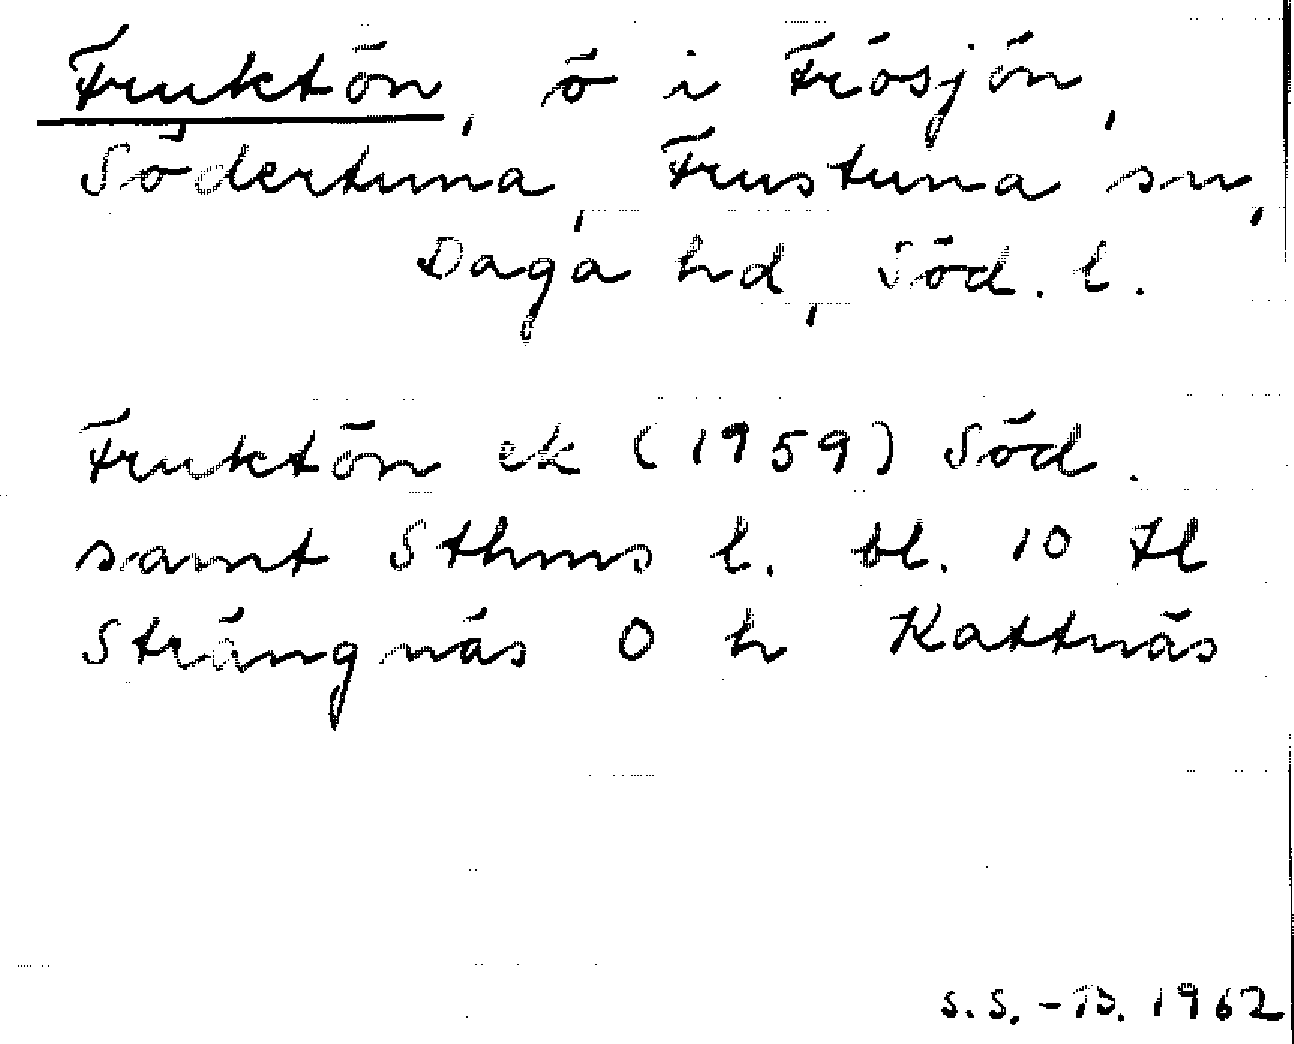 Fruktön, ö i Frösjön,
Södertuna, Frustuna sn,
Daga hd, Söd. l.
Fruktön ek (1959) Söd.
samt Sthms l. bl. 10 Hl
Strängnäs O h Kattnäs
S.S. - B. 1962